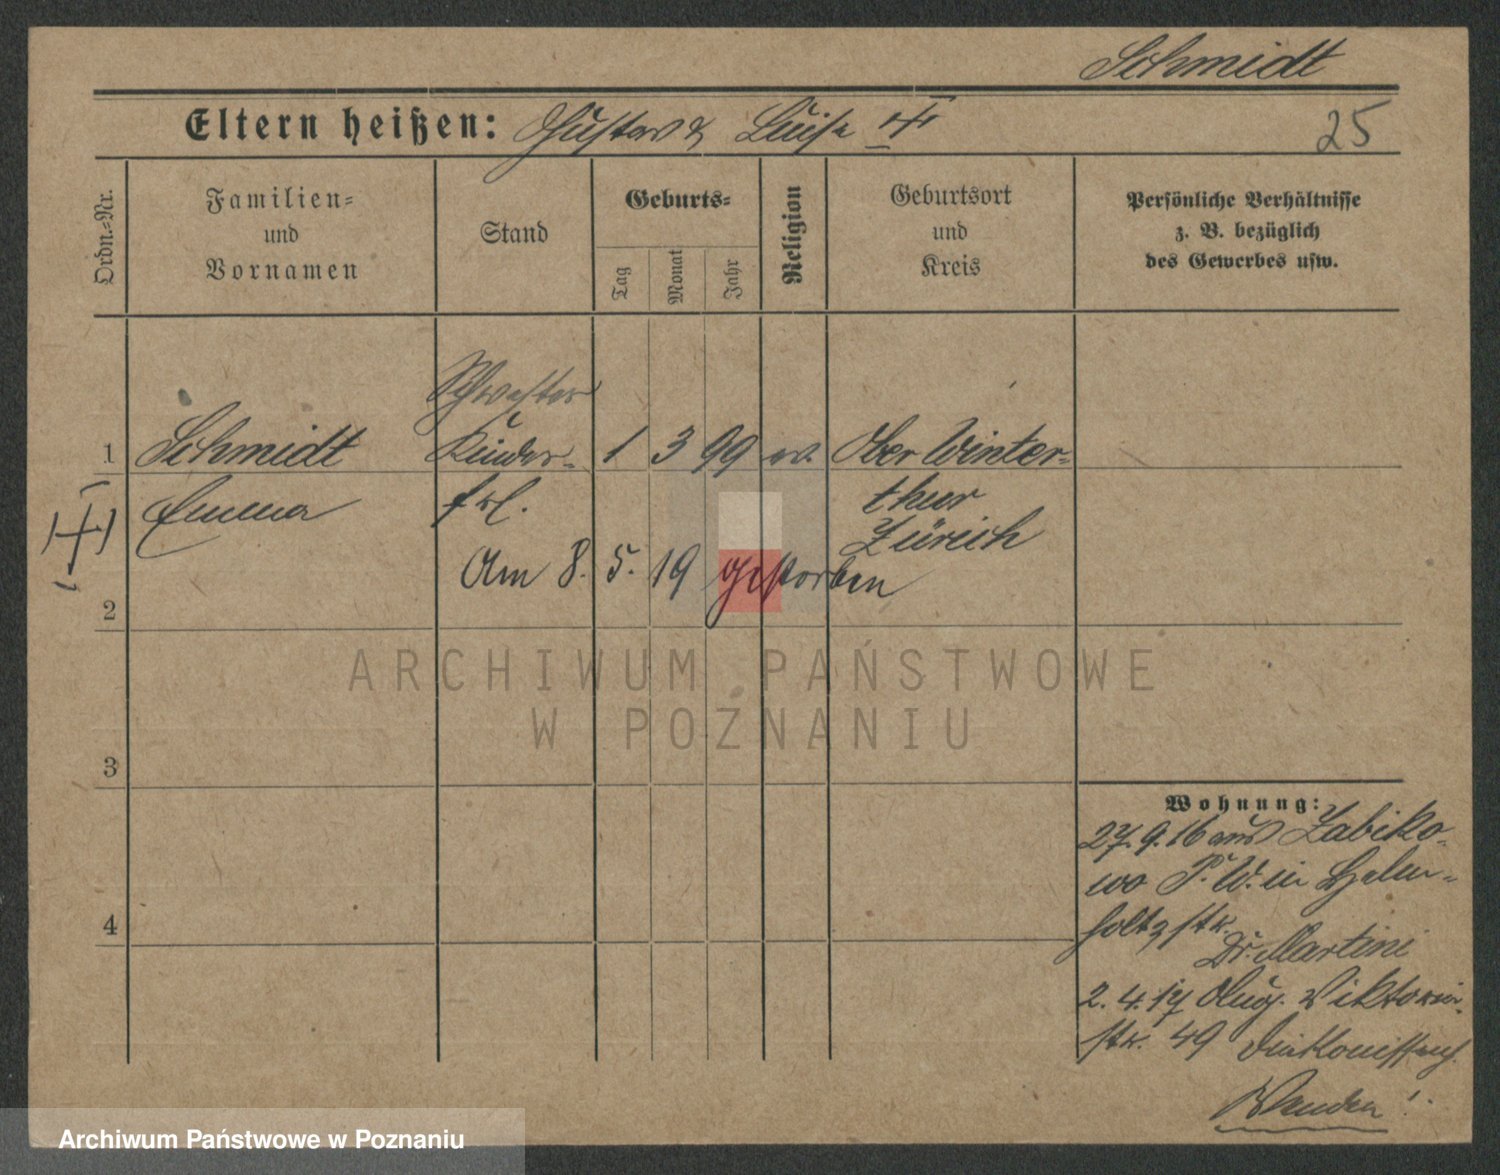 Schmidt
Eltern heißen: Gustav & Luise
25
Ordn.-Nr.
Familien-
und
Vornamen
Stand
Geburts-
Tag
Monat
Jahr
Religion
Geburtsort
und
Kreis
Persönliche Verhältnisse
z. B. bezüglich
des Gewerbes usw.
Schwester
1 Schmidt Kinder- 1 3 99 ev. Ober Winter-
Emma frl. thur
Zürich
Am 8. 5. 19 gestorben
2
ARCHIWUM PAŃSTWOWE
W POZNANIU
3
Wohnung:
27.9.16 aus Zabiko-
wo P. W. in Helm-
4
holtzstr.
Dr. Martini
2.4.17 Aug. Viktoria-
str. 49
Wenden!
Archiwum Państwowe w Poznaniu